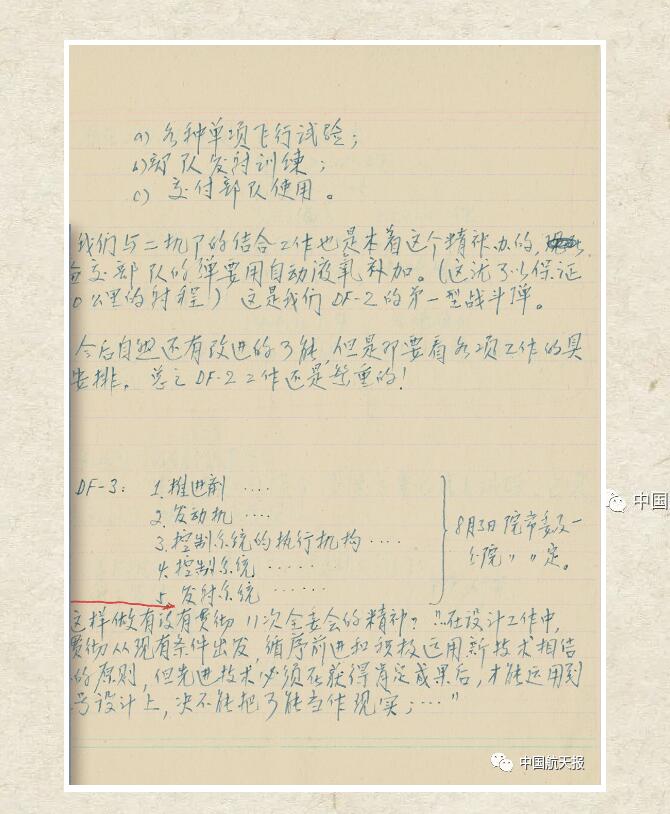 a) 各种单项飞行试验；
b) 部队发射训练；
c) 交付部队使用。
我们与二机部的结合工作也是本着这个精神办的，
交部队的弹要用自动液氧补加。(这法可以保证
0公里的射程) 这是我们DF-2的第一型战斗弹。
今后自然还有改进的可能，但是那要看各项工作的具
安排。总之DF-2工作还是繁重的！
DF-3: 1. 推进剂 ....
2. 发动机 ....
3. 控制系统的执行机构 ....
4. 控制系统 ......
5. 发射系统 ......
8月3日院常委及一
分院〃〃定。
中国
这样做有没有贯彻11次全委会的精神？"在设计工作中，
贯彻从现有条件出发，循序前进和积极运用新技术相结
的原则，但先进技术必须在获得肯定成果后，才能运用到
号设计上，决不能把可能当作现实；...."
中国航天报